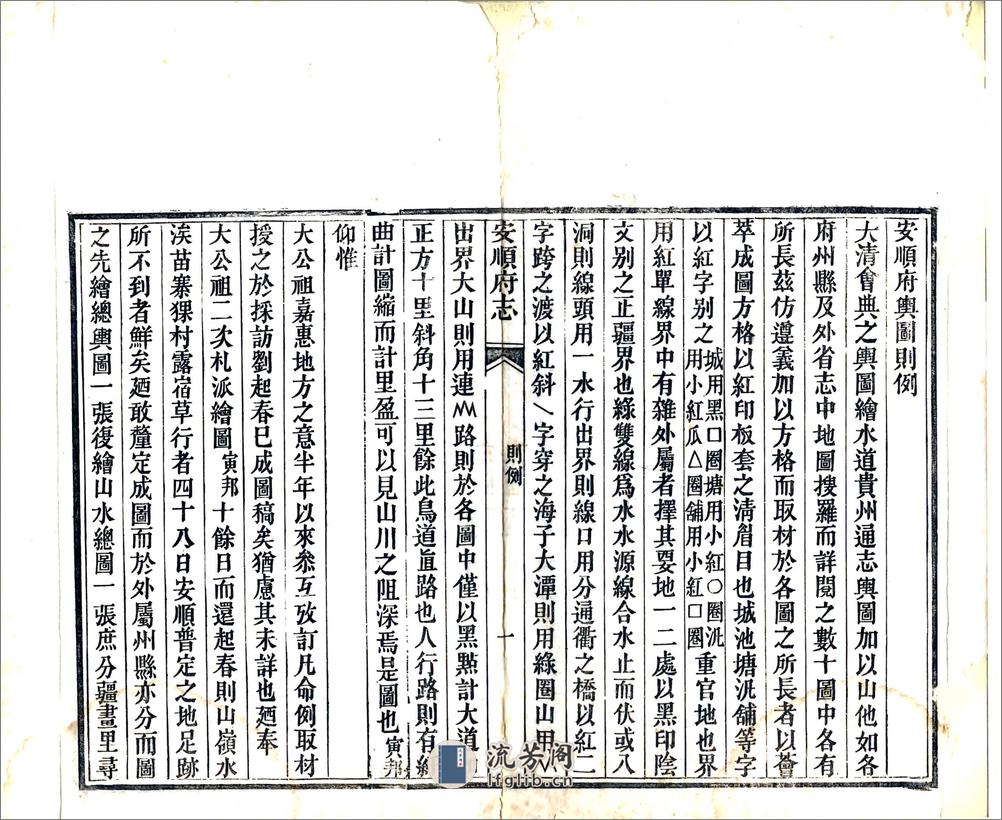 安順府輿圖則例
大淸會典之輿圖繪水道貴州通志輿圖加以山他如各
府州縣及外省志中地圖搜羅而詳閱之數十圖中各有
所長茲仿遵義加以方格而取材於各圖之所長者以薈
萃成圖方格以紅印板套之淸眉目也城池塘汛舖等字
以紅字別之城用黑口圈塘用小紅○圈汛用小紅瓜△圈舖用小紅口圈重官地也界
用紅單線界中有雜外屬者擇其要地一二處以黑印陰
文別之正疆界也綠雙線爲水水源線合水止而伏或入
洞則線頭用一水行出界則線口用分通衢之橋以紅二
字跨之渡以紅斜乀字穿之海子大潭則用綠圈山用
安順府志
則例
一
出界大山則用連 路則於各圖中僅以黑點計大道
正方十里斜角十三里餘此鳥道直路也人行路則有紆
曲計圖縮而計里盈可以見山川之阻深焉是圖也寅邦
仰惟
大公祖嘉惠地方之意半年以來叅互攷訂凡命例取材
授之於採訪劉起春已成圖稿矣猶慮其未詳也廼奉
大公祖二次札派繪圖寅邦十餘日而還起春則山嶺水
涘苗寨猓村露宿草行者四十八日安順普定之地足跡
所不到者鮮矣廼敢釐定成圖而於外屬州縣亦分而圖
之先繪總輿圖一張復繪山水總圖一張庶分疆畫里尋
流芳阁
lfglib.com